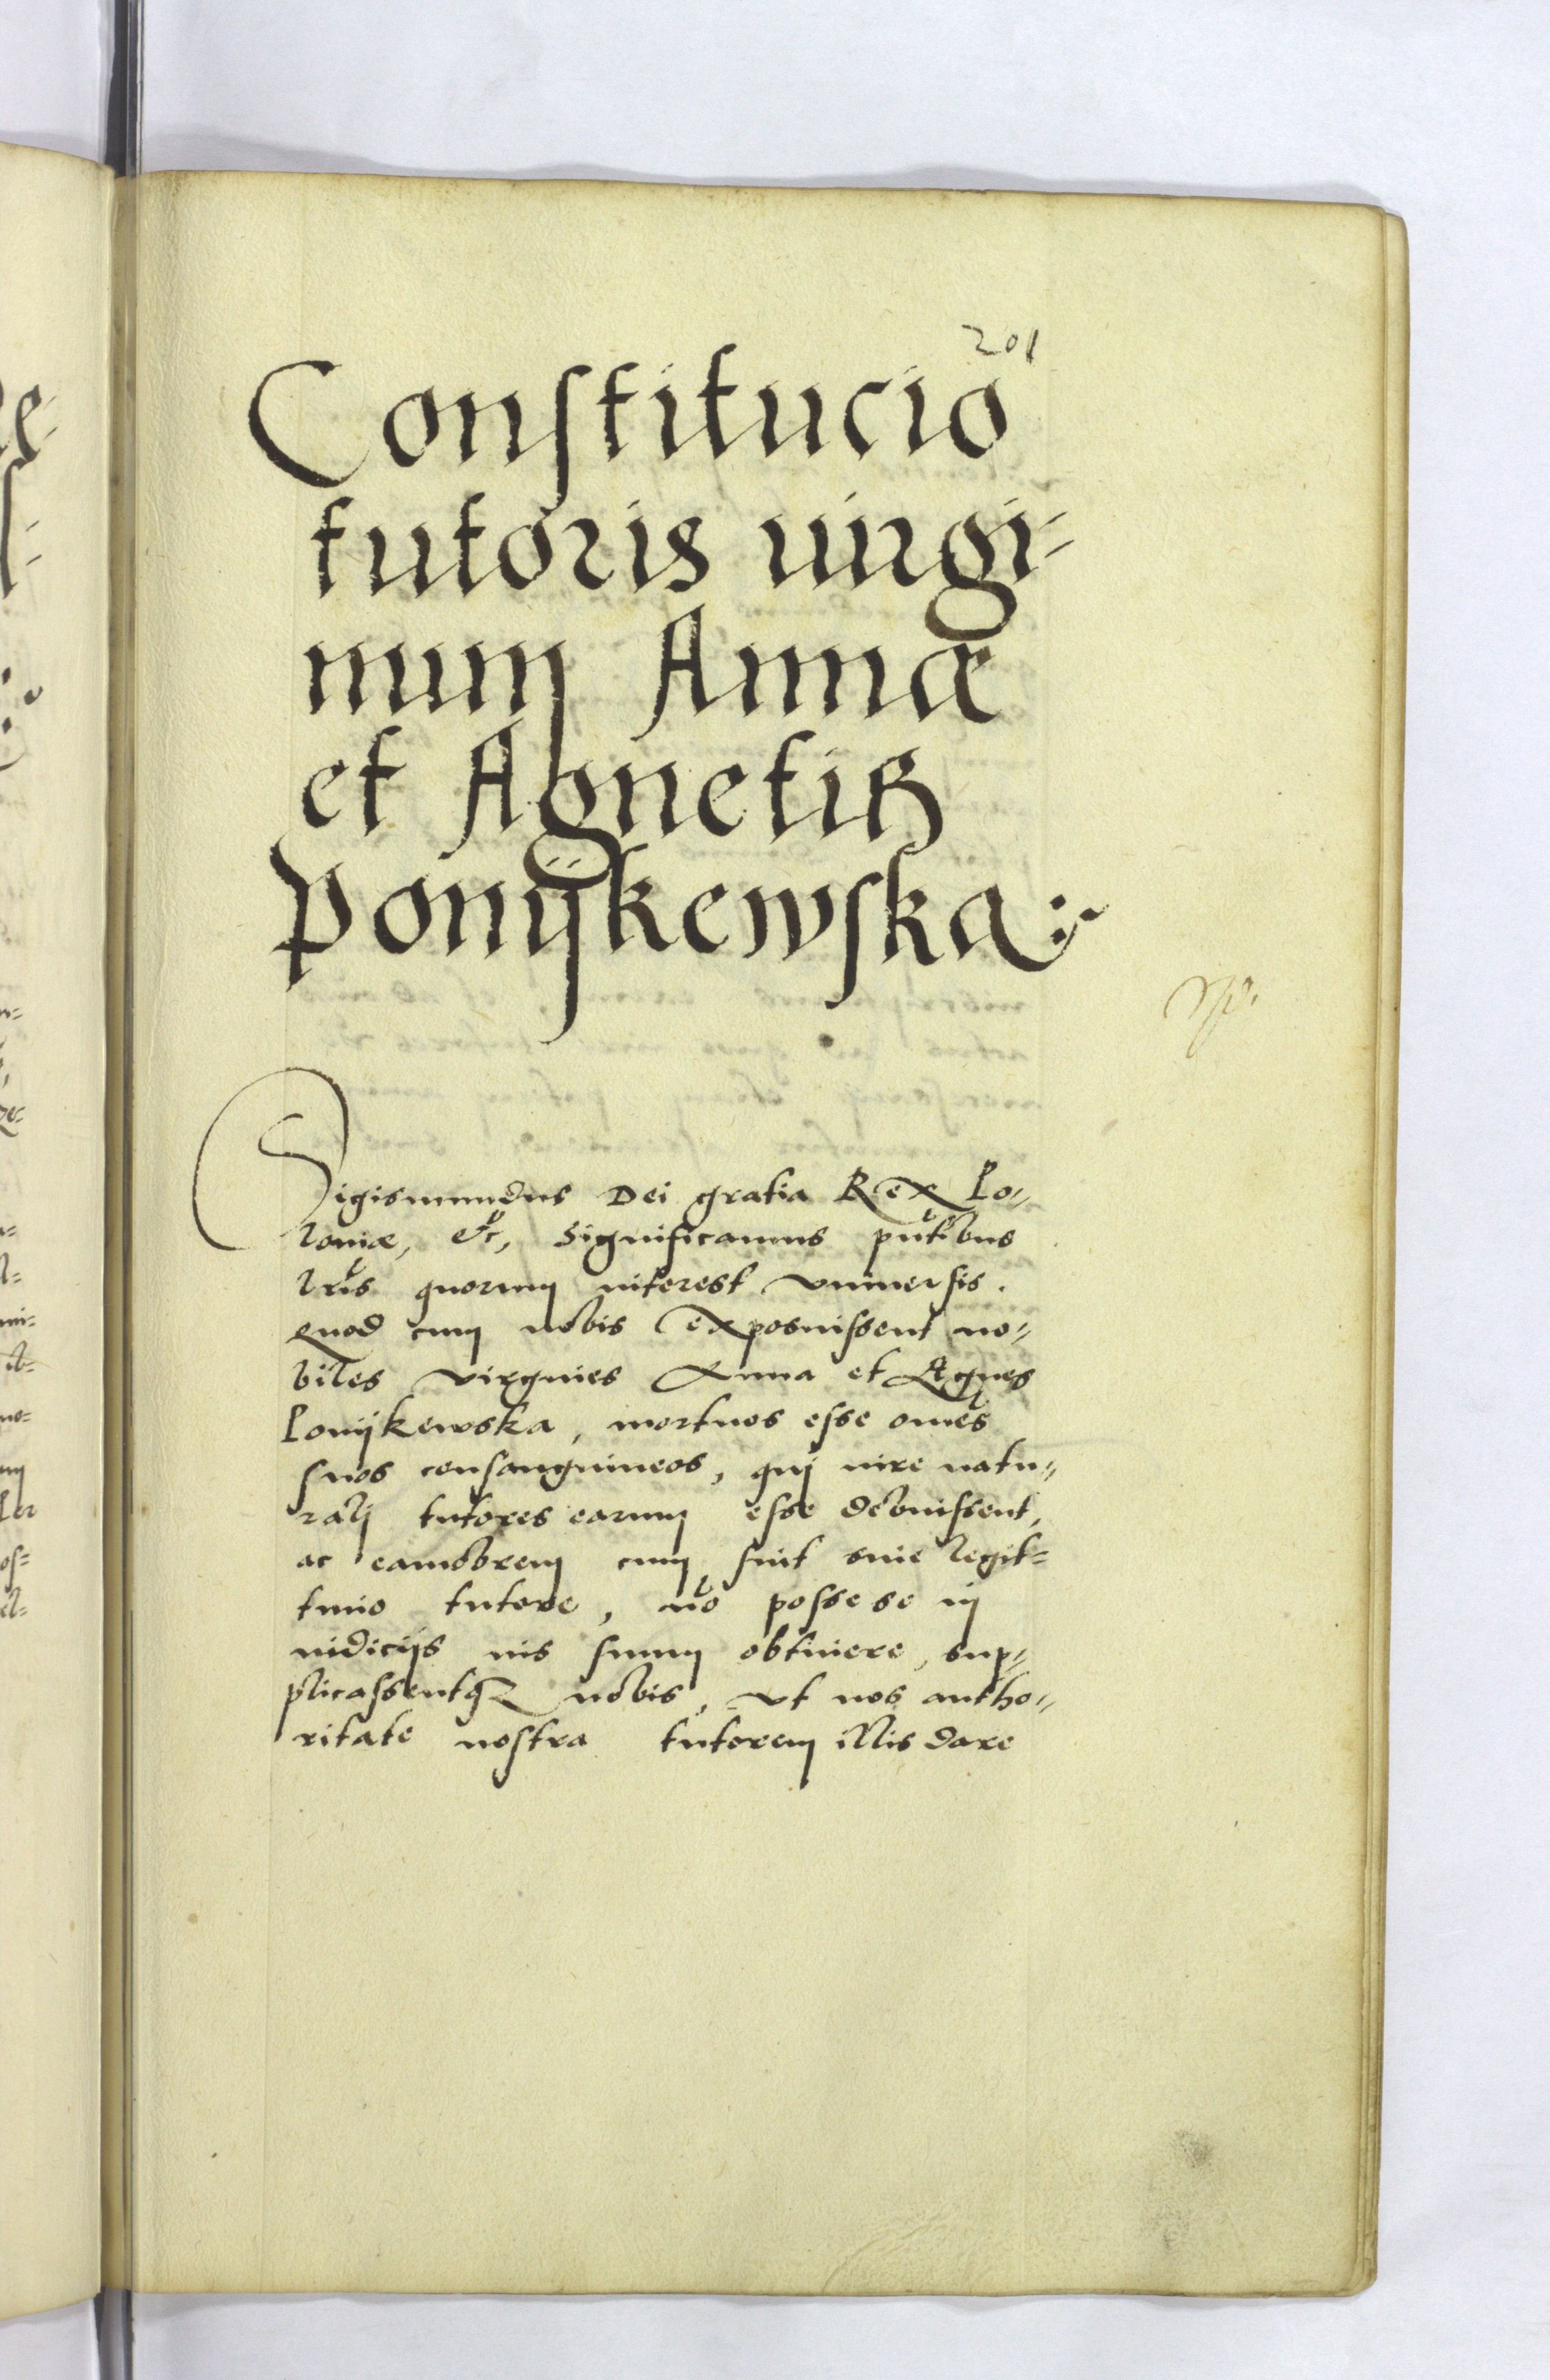 201
Constitucio
tutoris uirgi-
num Annæ
et Agnetis
Ponijkewska:
Sigismundus Dei gratia Rex Po-
loniæ, etc, Significamus pntibus
lris quorum interest vniuersis.
Quod cum nobis exposuissent no-
biles virgines Anna et Agnes
Ponijkewska, mortuos esse omes
suos consanguineos, qui iure natu-
rali tutores earum esse debuissent,
ac eamobrem cum sint sine legit-
timo tutore, no posse se in
iudicijs ius suum obtinere, sup-
plicassentq nobis, vt nos autho-
ritate nostra tutorem illis dare